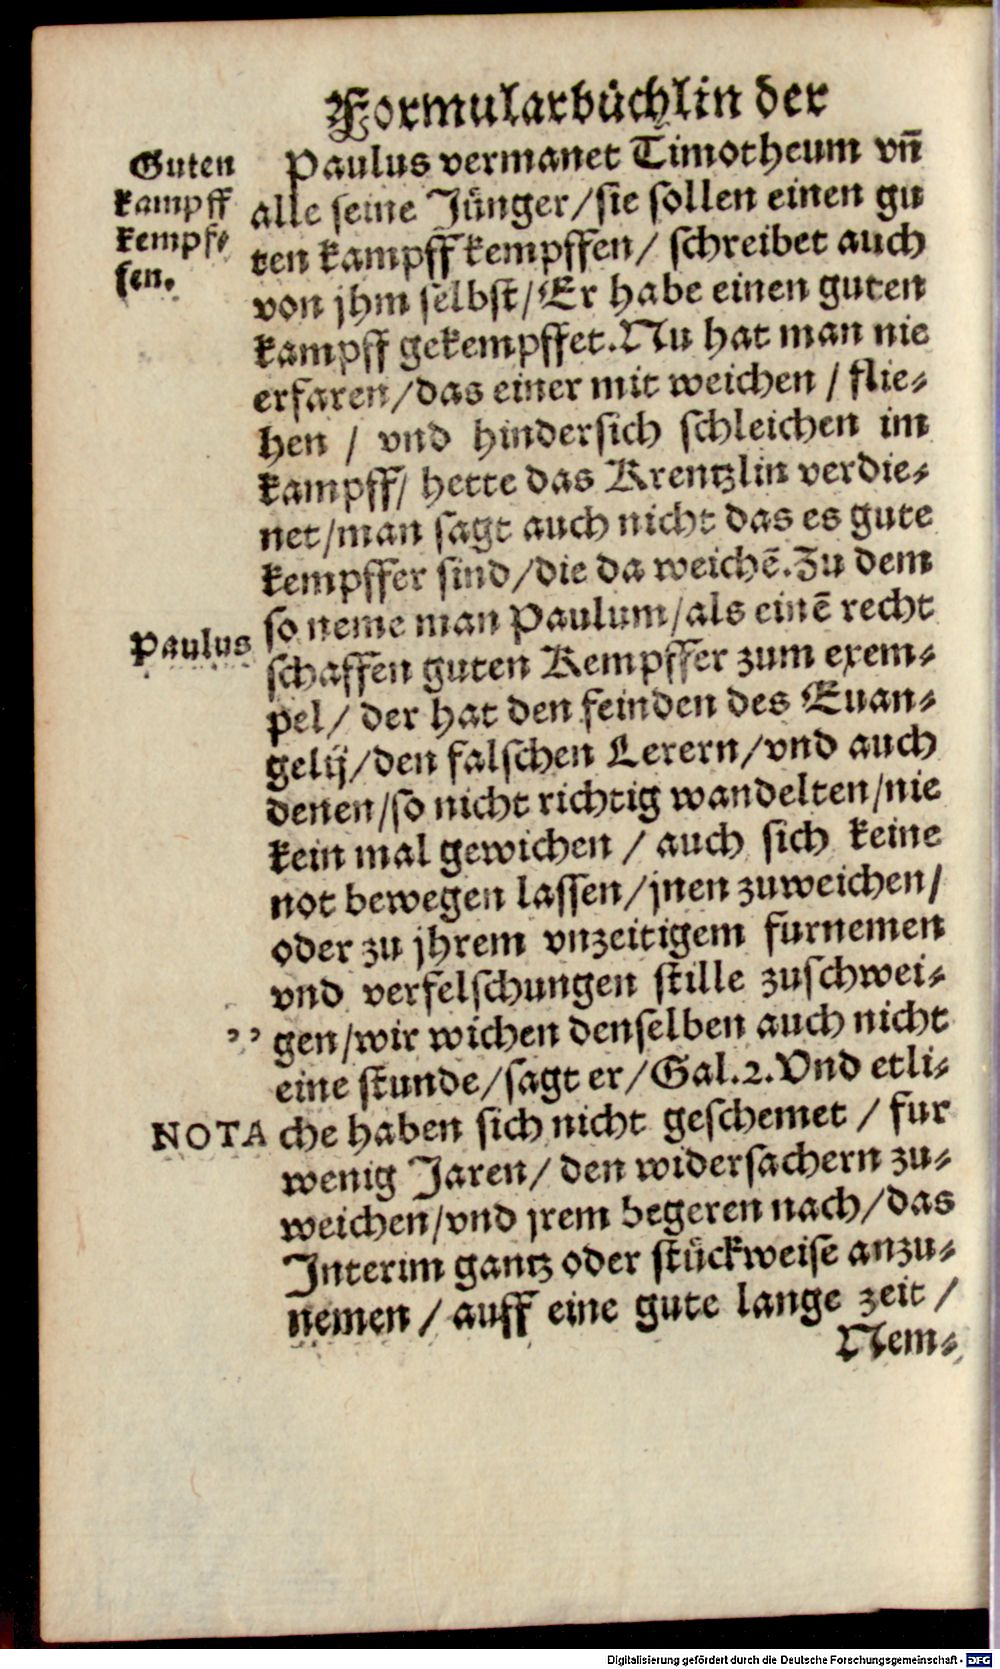 Formularbüchlin der
Guten
kampff
kempf⸗
fen.
Paulus vermanet Timotheum vñ
alle seine Jünger/sie sollen einen gu
ten kampff kempffen/ schreibet auch
von jhm selbst/Er habe einen guten
kampff gekempffet.Nu hat man nie
erfaren/das einer mit weichen / flie⸗
hen / vnd hindersich schleichen im
kampff/ hette das Krentzlin verdie⸗
net/man sagt auch nicht das es gute
kempffer sind/die da weichẽ.Zu dem
Paulus
so neme man Paulum/als einẽ recht
schaffen guten Kempffer zum exem⸗
pel/ der hat den feinden des Euan⸗
gelij/den falschen Lerern/vnd auch
denen/so nicht richtig wandelten/nie
kein mal gewichen / auch sich keine
not bewegen lassen/jnen zuweichen/
oder zu jhrem vnzeitigem furnemen
vnd verfelschungen stille zuschwei⸗
,, gen/wir wichen denselben auch nicht
eine stunde/sagt er/Gal.2.Vnd etli⸗
NOTA
che haben sich nicht geschemet / fur
wenig Jaren/ den widersachern zu⸗
weichen/vnd jrem begeren nach/das
Interim gantz oder stückweise anzu⸗
nemen / auff eine gute lange zeit /
Nem⸗
Digitalisierung gefördert durch die Deutsche Forschungsgemeinschaft - DFG